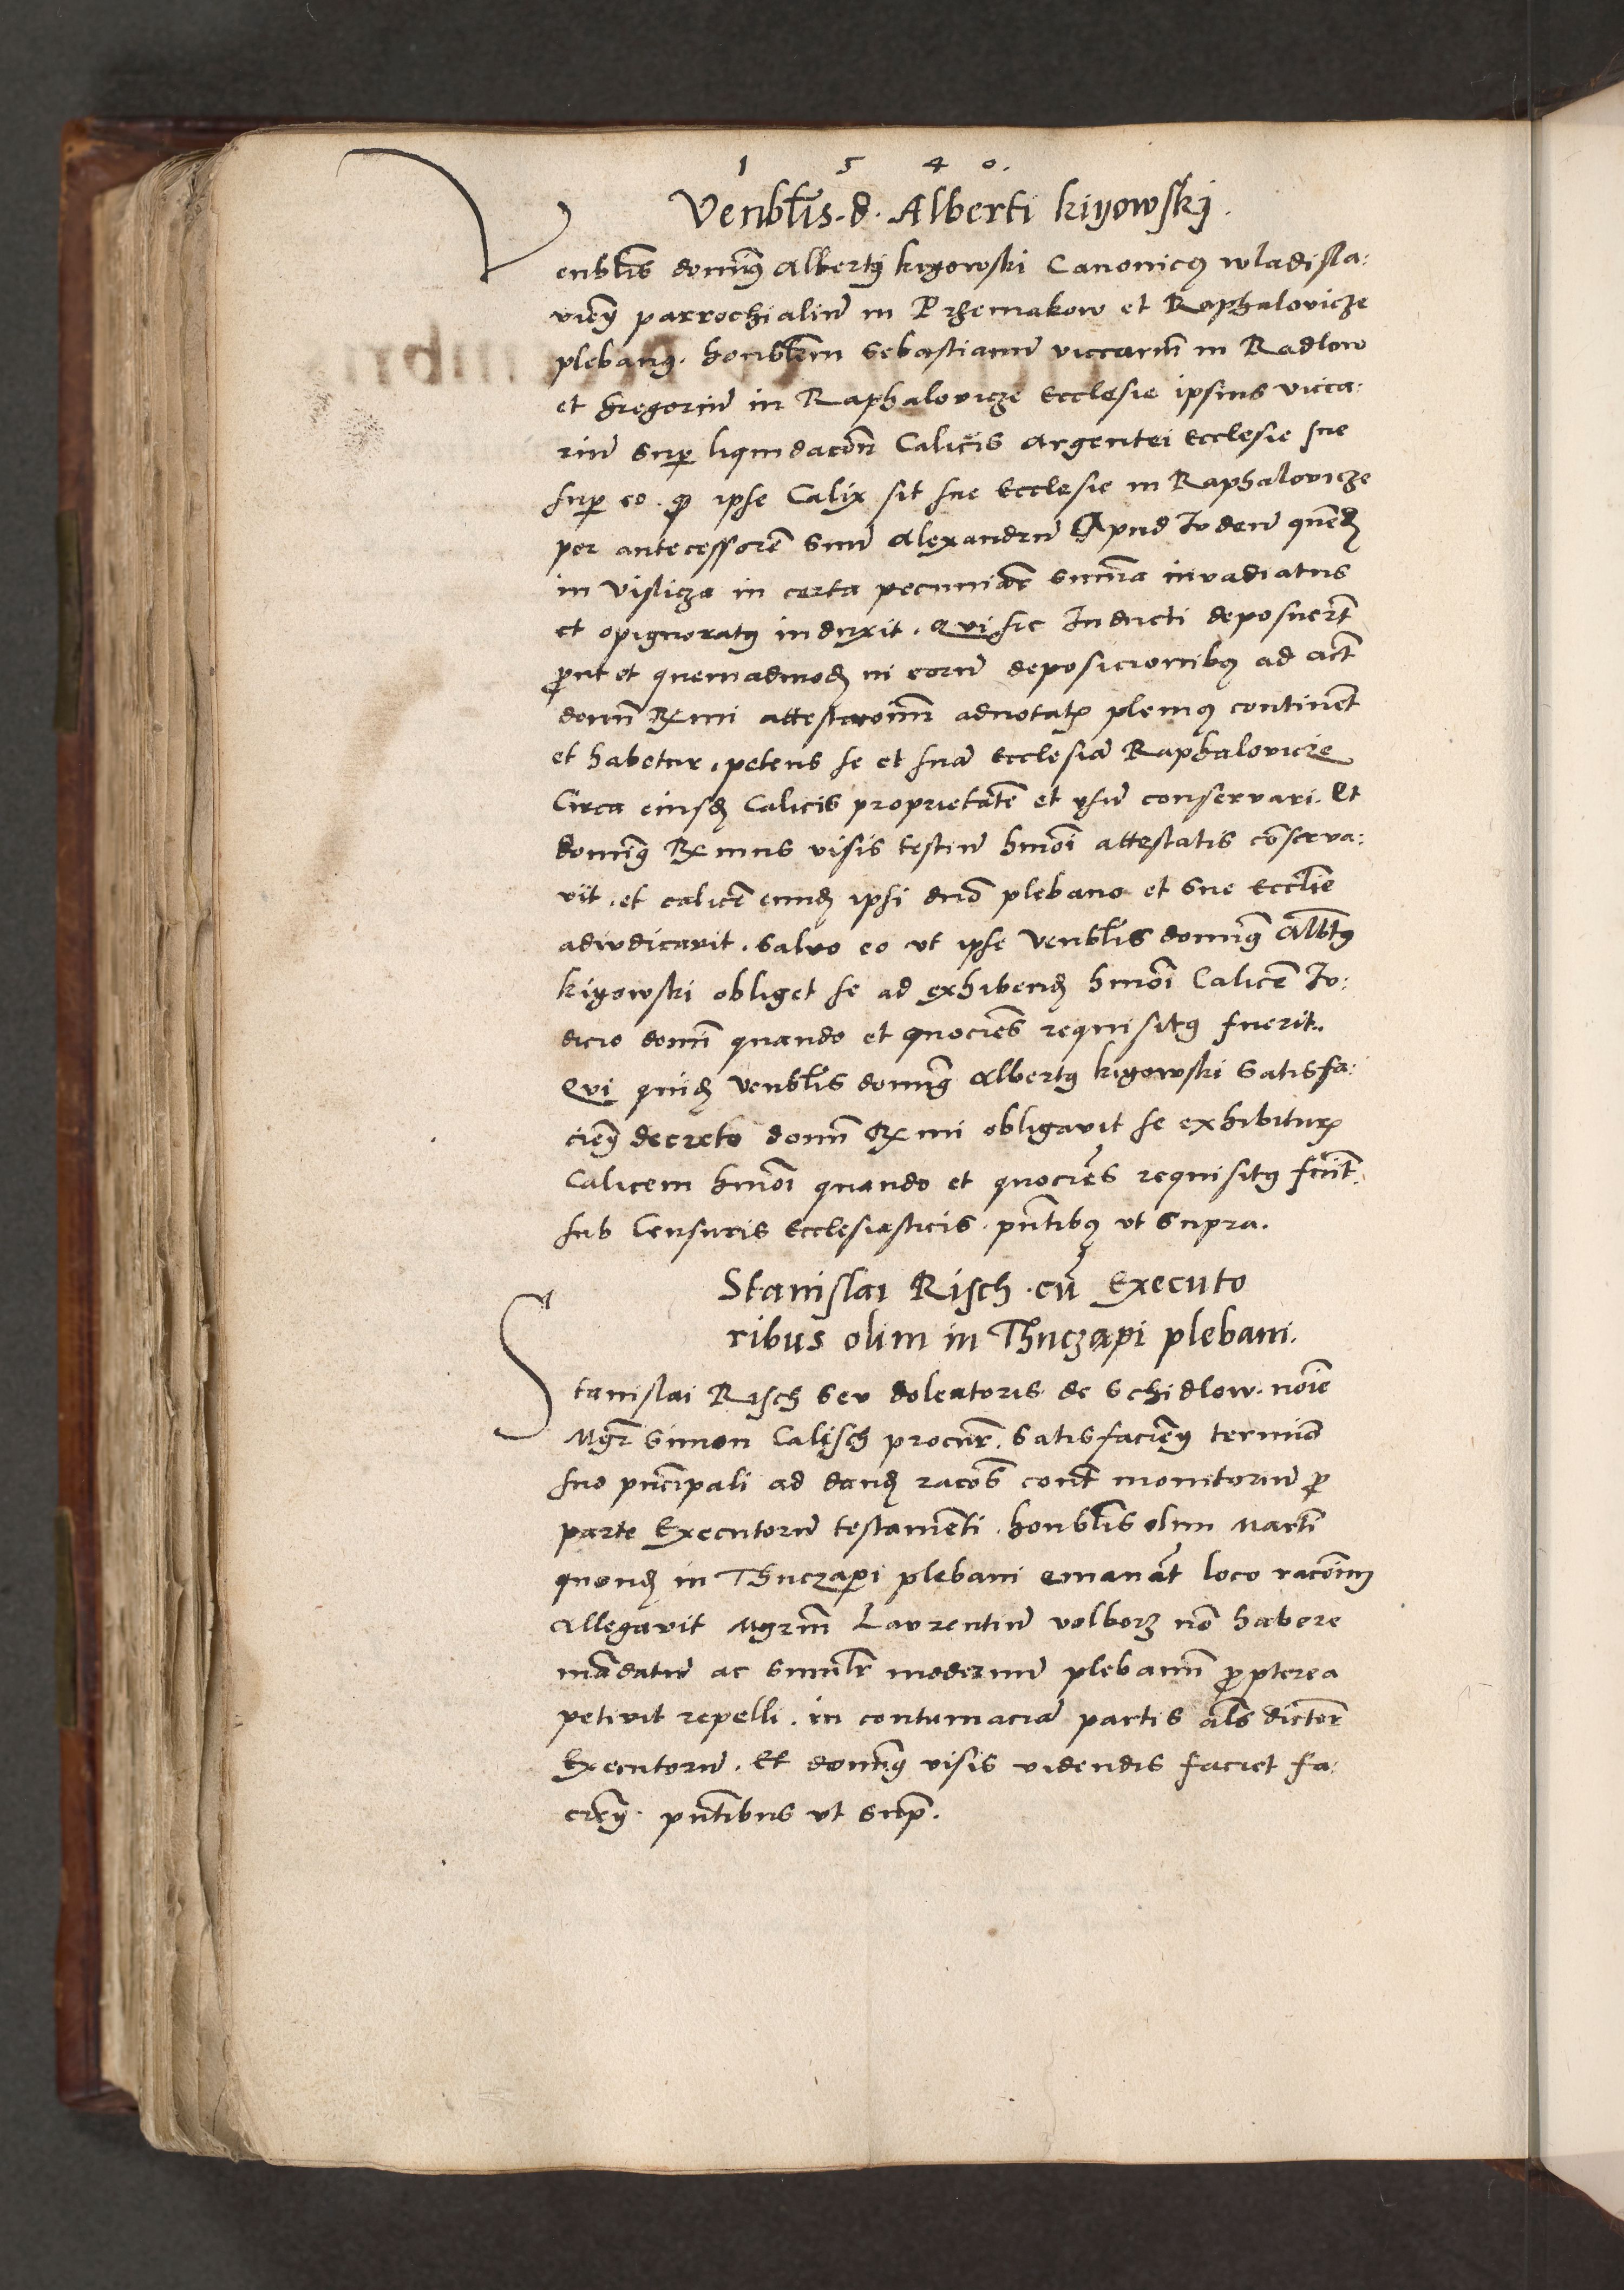 1 5 4 0.
Venblis. d. Alberti kiyowskj.
Venblis dominus Albertus kiyowski Canonicus wladisla:
vien parrochialium in Przemakow et Raphalovicze
plebanus. honblem Sebastianum viccarium in Radlow
et gregorium in Raphalovicze Ecclesie ipsius vicca:
rium Super liquidacōn Calicis Argentei Ecclesie sue
super eo. qꝫ ipse Calix sit sue Ecclesie in Raphalovicze
per antecessorē suum Alexandrum Apud Judeum quendā
in Visticza in certa pecuniar sūma invadiatus
et opignoratus induxit. Qui sic Inducti deposuerūt
prout et quemadmodū in eorum deposicionibus ad act
domni Rmi attestacionum adnotatis plenius continent
et habetur. petens se et suā Ecclesiā Raphalovicze
Circa eiusdē Calicis proprietatē et vsum conservari. Et
dominus Rmus visis testium hmōi attestatis cōserva:
vit. et calicē eundē ipsi dno plebano et Sue Ecclie
adiudicavit. Salvo eo vt ipse Venblis dominus Albtus
kiyowski obliget se ad exhibendū hmōi Calicē Ju:
dicio domni quando et quociens requisitus fuerit.
Qui quidē Venblis dominus Albertus kiyowski Satisfa:
cien decreto domni Rmi obligavit se exhibiturū
Calicem hmōi quando et quociens requisitus fuit.
sub Censuris Ecclesiasticis. pntibus vt Supra.
Stanislai Risch. cū Executo
ribus olim in Thuczapi plebani.
Stanislai Risch Seu doleatoris de Schidlow. noīe
Mgr Simon Calisch procur. Satisfacien termino
suo pncipali ad dandū racōes cont monitorium pro
parte Executorum testamenti. honblis olim Martī
quondā in Thuczapi plebani emanāt loco racōnum
Allegavit Mgrum Laurentium volborz nō habere
mādatum ac similr modernum plebanum propterea
petivit repelli. in contumaciā partis als dictor
Executorum. Et dominus visis videndis faciet fa:
cien. pntibus vt Sup.